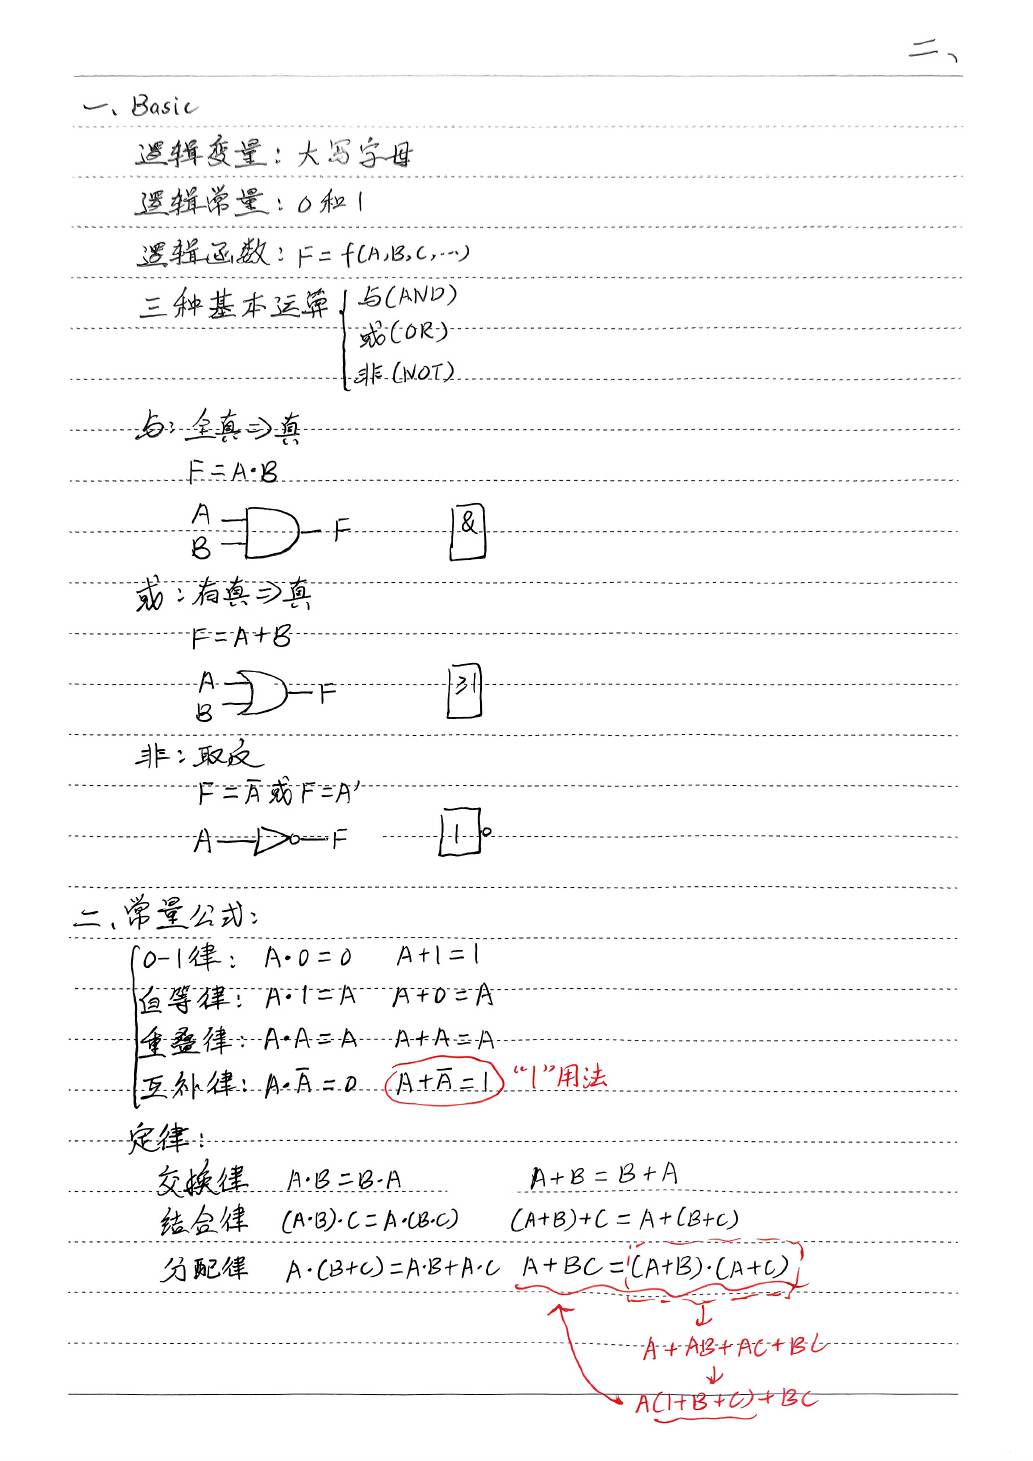 二、
一、Basic
逻辑变量：大写字母
逻辑常量：0和1
逻辑函数：F=f(A,B,C,…)
三种基本运算 与(AND)
或(OR)
非(NOT)
与：全真⇒真
F=A·B
A
B
F
&
或：有真⇒真
F=A+B
A
B
F
≥1
非：取反
F=A̅ 或 F=A'
A
F
1
二、常量公式：
0-1律： A·0=0 A+1=1
自等律： A·1=A A+0=A
重叠律： A·A=A A+A=A
互补律： A·A̅=0 A+A̅=1 “1”用法
定律：
交换律 A·B=B·A A+B=B+A
结合律 (A·B)·C=A·(B·C) (A+B)+C=A+(B+C)
分配律 A·(B+C)=A·B+A·C A+BC=(A+B)·(A+C)
↓
A+AB+AC+BC
↓
A(1+B+C)+BC